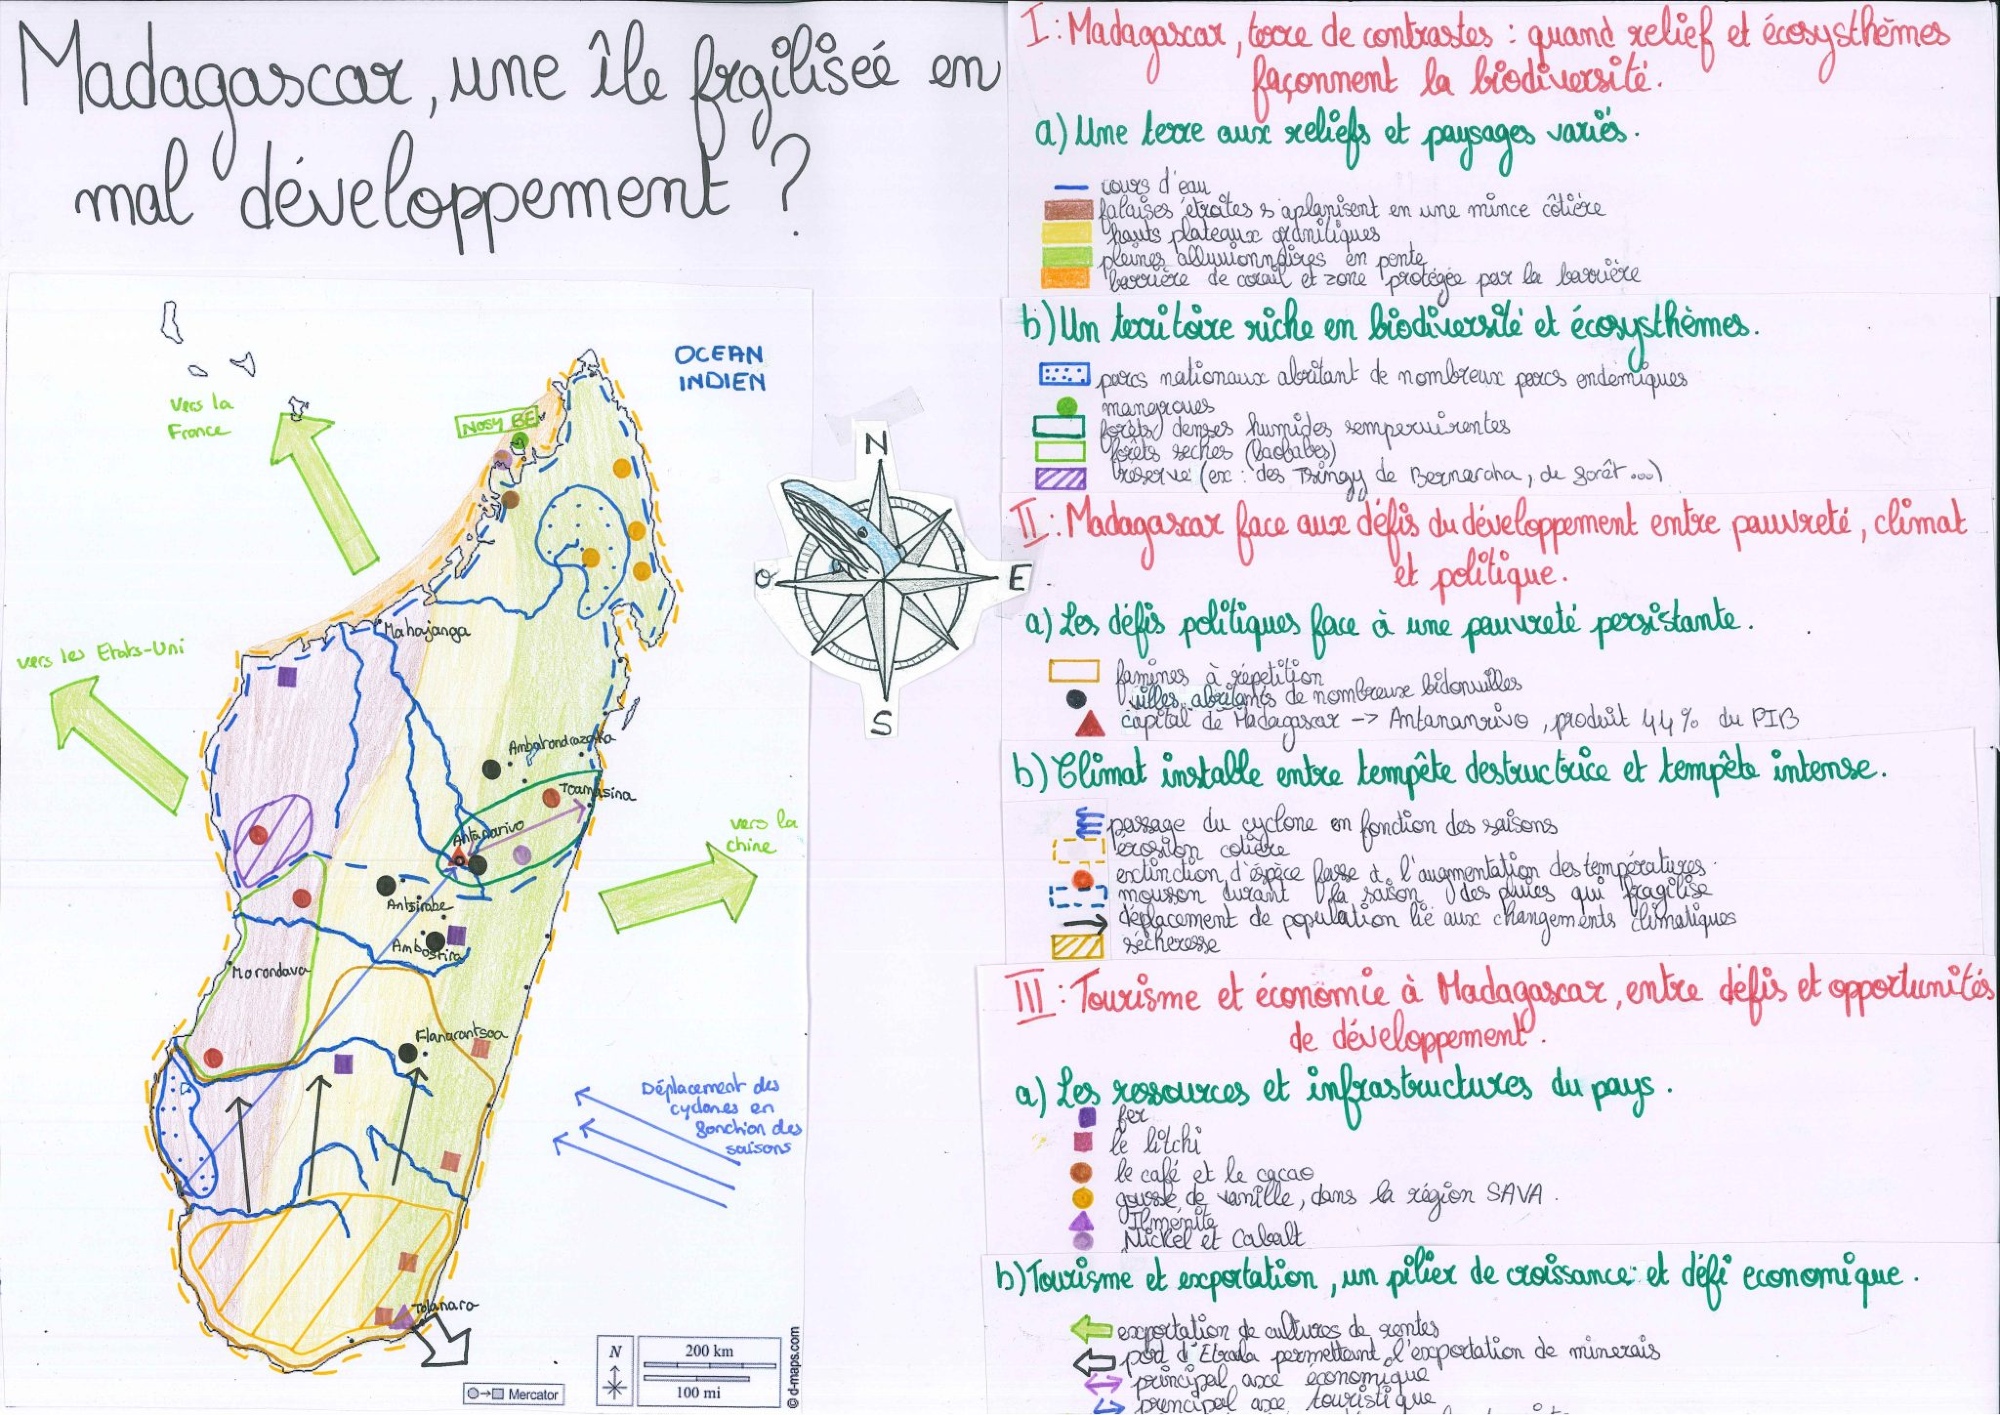 Madagascar, une île frgilisée en
mal développement ?
OCEAN
INDIEN
Vers la
France
NOSY BE
Mahajanga
vers les Etats-Uni
Ambatondrazaka
Toamasina
Antananarivo
vers la
chine
Antsirabe
Ambositra
Morondava
Fianarantsoa
Déplacement des
cyclones en
fonction des
saisons
Tôlanaro
Mercator
N
200 km
100 mi
© d-maps.com
N
O
E
S
I : Madagascar, terre de contrastes : quand relief et écosysthèmes
façonnent la biodiversité.
a) Une terre aux reliefs et paysages variés.
cours d'eau
falaises étroites s'aplanisent en une mince côtière
hauts plateaux granitiques
pleines alluvionnaires en pente
barrière de corail et zone protégée par la barrière
b) Un territoire riche en biodiversité et écosysthèmes.
parcs nationaux abritant de nombreux parcs endémiques
mangroves
forêts denses humides sempervirentes
forêts seches (baobabes)
réserve (ex : des Tsingy de Bemaraha, de forêt ...)
II : Madagascar face aux défis du développement entre pauvreté, climat
et politique.
a) Les défis politiques face à une pauvreté persistante.
famines à répetition
villes abritants de nombreux bidonvilles
capital de Madagascar -> Antananrivo, produit 44% du PIB
b) Climat instable entre tempête destructrice et tempête intense.
passage du cyclone en fonction des saisons
érosion cotière
extinction d'éspèce fasse à l'augmentation des températures
mouson durant la saison des pluies qui fragilise
déplacement de population lié aux changements climatiques
sécheresse
III : Tourisme et économie à Madagascar, entre défis et opportunités
de développement.
a) Les ressources et infrastructures du pays.
fer
le litchi
le café et le cacao
gousse de vanille, dans la région SAVA.
Ilménite
Nickel et Cobalt
b) Tourisme et exportation, un pilier de croissance et défi economique.
exportation de cultures de rentes
port d'Ehoala permettant l'exportation de minerais
principal axe economique
principal axe touristique